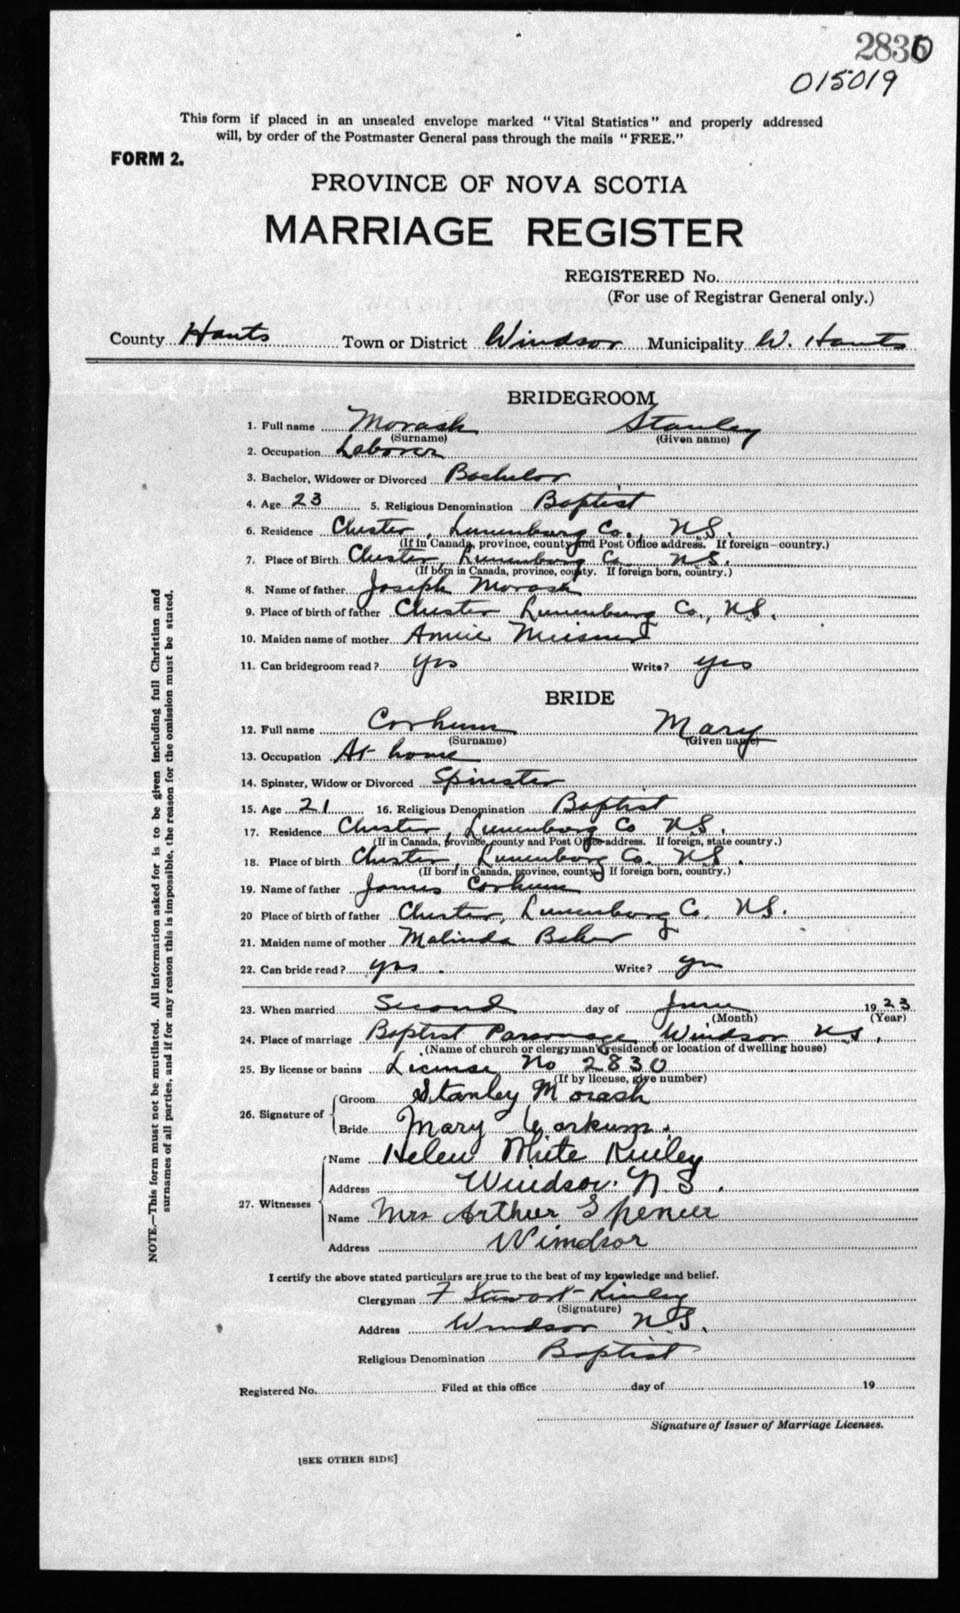 2830
015019
This form if placed in an unsealed envelope marked "Vital Statistics" and properly addressed
will, by order of the Postmaster General pass through the mails "FREE."
FORM 2.
PROVINCE OF NOVA SCOTIA
MARRIAGE REGISTER
REGISTERED No.
(For use of Registrar General only.)
County Hants Town or District Windsor Municipality W. Hants
BRIDEGROOM
1. Full name Morash Stanley
(Surname) (Given name)
2. Occupation Laborer
3. Bachelor, Widower or Divorced Bachelor
4. Age 23 5. Religious Denomination Baptist
6. Residence Chester, Lunenburg Co., N.S.
(If in Canada, province, county and Post Office address. If foreign—country.)
7. Place of Birth Chester Lunenburg Co N.S.
(If born in Canada, province, county. If foreign born, country.)
8. Name of father Joseph Morash
9. Place of birth of father Chester Lunenburg Co., N.S.
10. Maiden name of mother Annie Meisner
11. Can bridegroom read? yes Write? yes
BRIDE
12. Full name Corkum Mary
(Surname) (Given name)
13. Occupation At home
14. Spinster, Widow or Divorced Spinster
15. Age 21 16. Religious Denomination Baptist
17. Residence Chester, Lunenburg Co N.S.
(If in Canada, province, county and Post Office address. If foreign, state country.)
18. Place of birth Chester, Lunenburg Co. N.S.
(If born in Canada, province, county. If foreign born, country.)
19. Name of father James Corkum
20 Place of birth of father Chester, Lunenburg Co. N.S.
21. Maiden name of mother Malinda Baker
22. Can bride read? yes. Write? yes
23. When married Second day of June 1923
(Month) (Year)
24. Place of marriage Baptist Parsonage Windsor N.S.
(Name of church or clergyman's residence or location of dwelling house)
25. By license or banns License No 2830
(If by license, give number)
26. Signature of Groom Stanley Morash
Bride Mary Corkum.
27. Witnesses Name Helen White Kinley
Address Windsor. N.S.
Name Mrs Arthur Spencer
Address Windsor
I certify the above stated particulars are true to the best of my knowledge and belief.
Clergyman F Stewart Kinley
(Signature)
Address Windsor N.S.
Religious Denomination Baptist
Registered No. Filed at this office day of 19
Signature of Issuer of Marriage Licenses.
[SEE OTHER SIDE]
NOTE.—This form must not be mutilated. All information asked for is to be given including full Christian and
surnames of all parties, and if for any reason this is impossible, the reason for the omission must be stated.